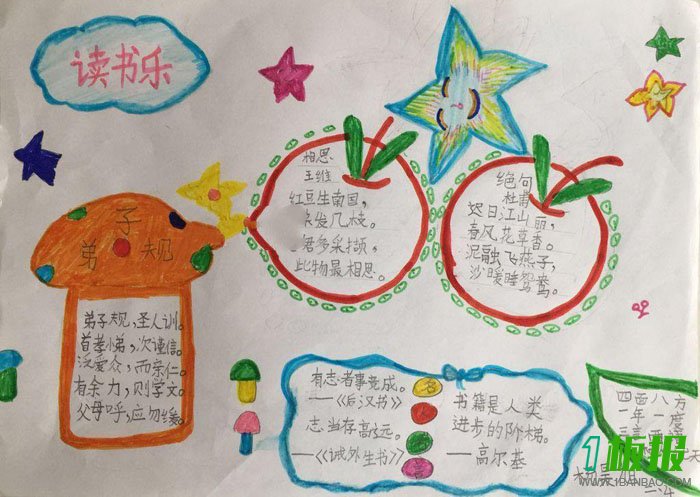 读书乐
弟子规
弟子规,圣人训。
首孝悌,次谨信。
泛爱众,而亲仁。
有余力,则学文。
父母呼,应勿缓。
相思
王维
红豆生南国,
发几枝。
君多采撷,
此物最相思。
绝句
杜甫
迟日江山丽,
春风花草香。
泥融飞燕子,
沙暖睡鸳鸯。
有志者事竟成。
—《后汉书》
志当存高远。
—《诫外生书》
名
书籍是人类
进步的阶梯。
—高尔基
四面八方
一年一
1板报
WWW.1BANBAO.COM